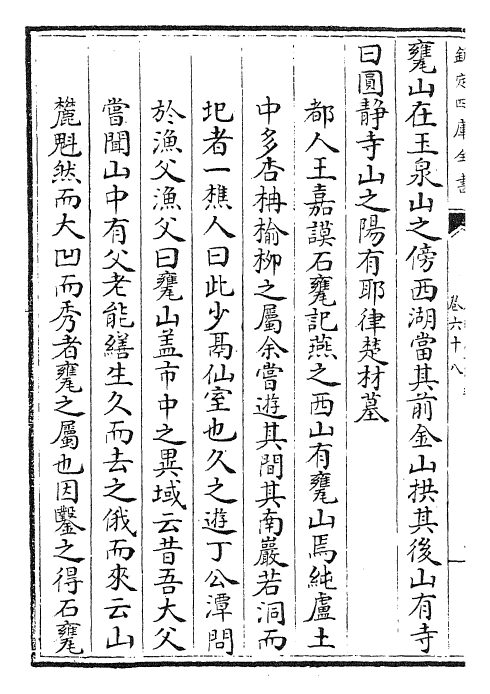 欽定四庫全書
卷六十八
甕山在玉泉山之傍西湖當其前金山拱其後山有寺
曰圓静寺山之陽有耶律楚材墓
都人王嘉謨石甕記燕之西山有甕山焉純盧土
中多杏柟榆柳之屬余嘗遊其間其南巖若洞而
圯者一樵人曰此少鬲仙室也久之遊丁公潭問
於漁父漁父曰甕山盖市中之異域云昔吾大父
嘗聞山中有父老能繕生久而去之俄而來云山
麓魁然而大凹而秀者甕之屬也因鑿之得石甕